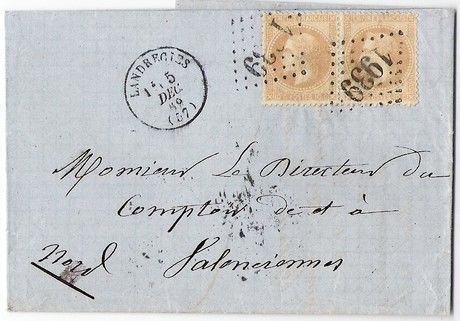 LANDRECIES
5
DEC.
(57)
1939
Monsieur Le Directeur du
Comptoir de et à
Nord Valenciennes